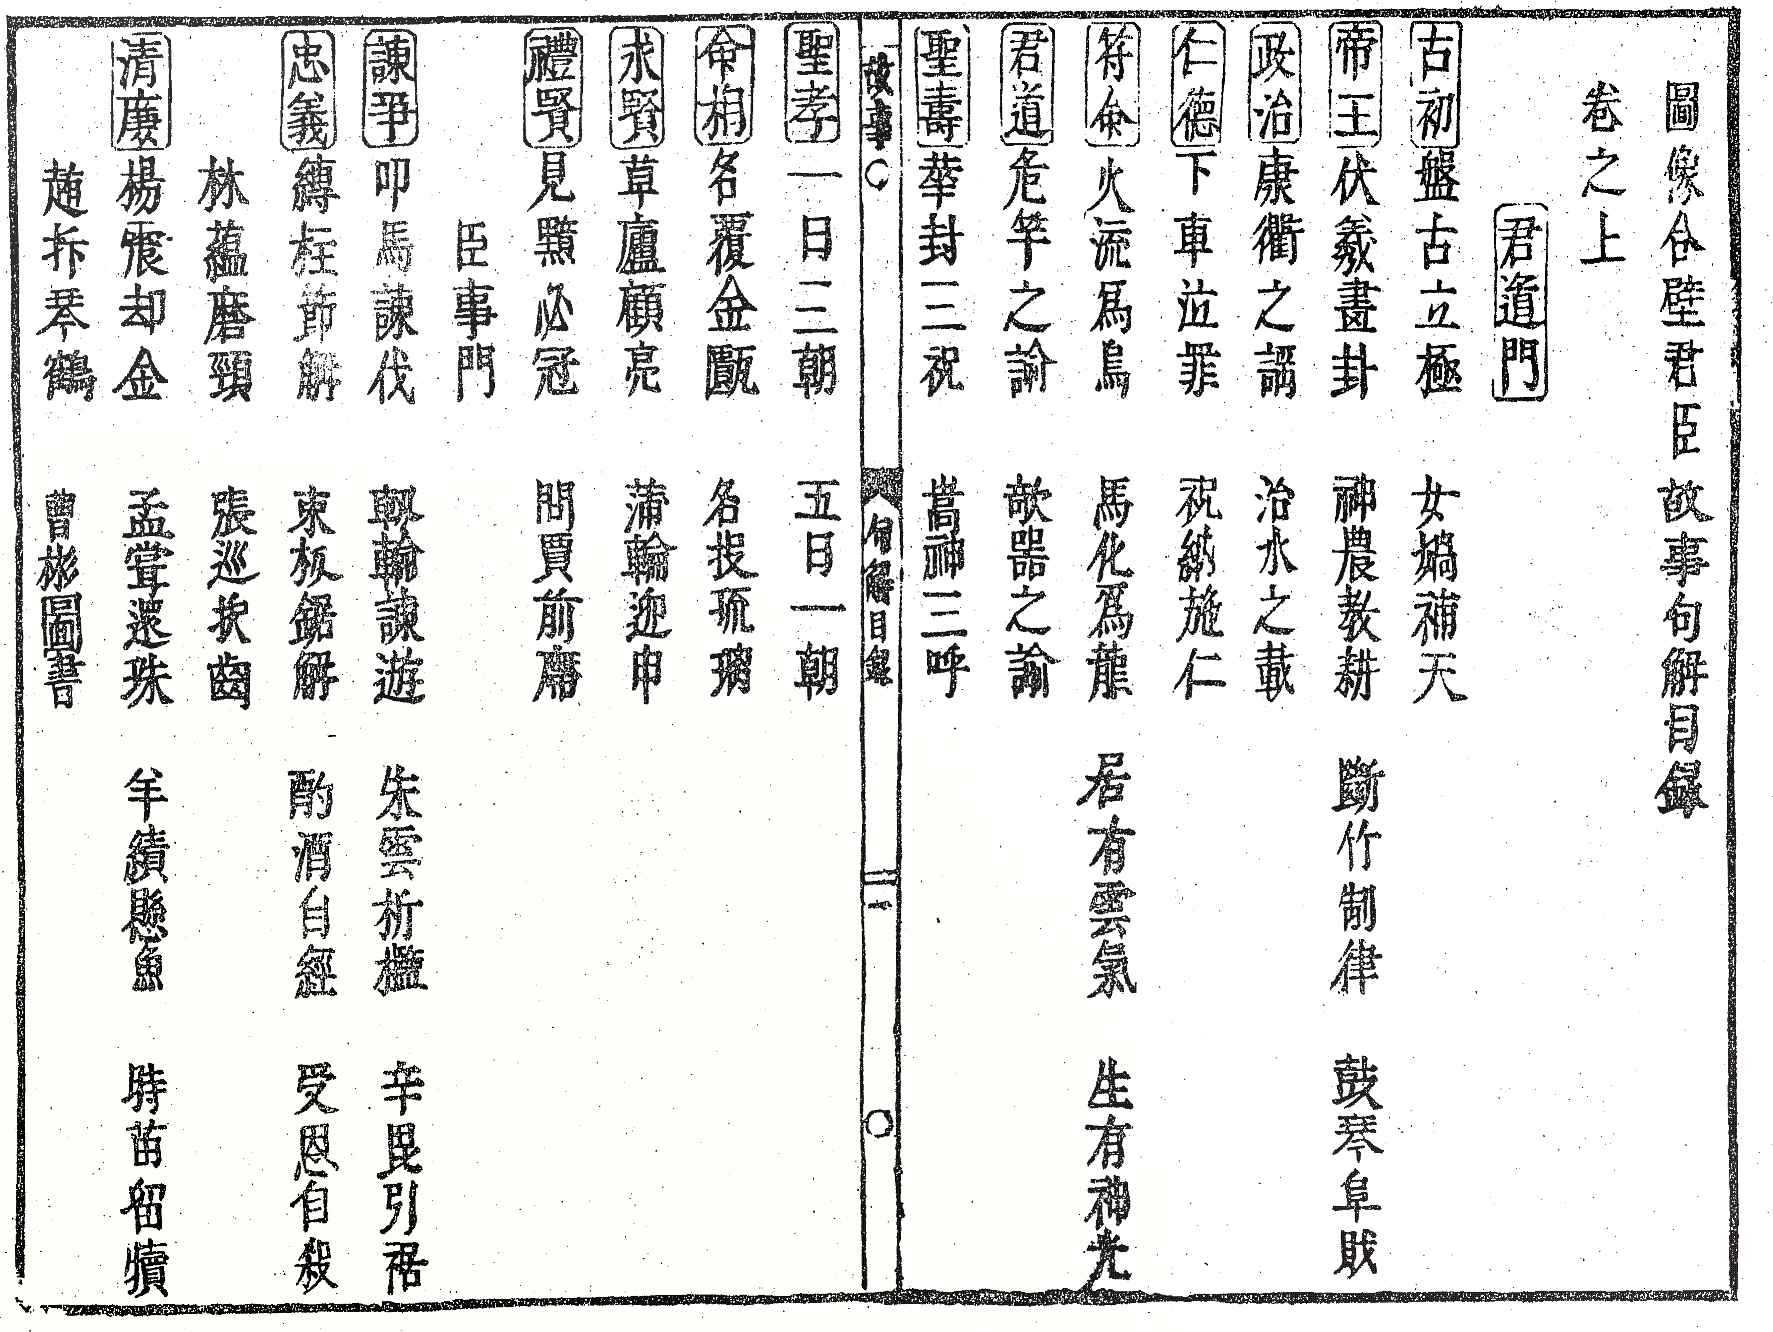 圖像合璧君臣故事句解目録
卷之上
君道門
古初 盤古立極 女媧補天
帝王 伏羲畫卦 神農教耕 斷竹制律 鼓琴阜財
政治 康衢之謡 治水之載
仁德 下車泣罪 祝網施仁
符命 火流爲烏 馬化爲龍 居有雲氣 生有神光
君道 危竿之諭 欹器之諭
聖壽 華封三祝 嵩神三呼
故事〇 句解目録 二
聖孝 一日二朝 五日一朝
命相 名覆金甌 名投琉璃
求賢 草廬顧亮 蒲輪迎申
禮賢 見黯必冠 問賈前席
臣事門
諫爭 叩馬諫伐 軔輪諫遊 朱雲折檻 辛毗引裾
忠義 縛柱節解 束板鋸解 酌酒自經 受恩自殺
林藴磨頸 張巡抉齒
清廉 楊震却金 孟嘗還珠 羊續懸魚 時苗留犢
趙抃琴鶴 曹彬圖書